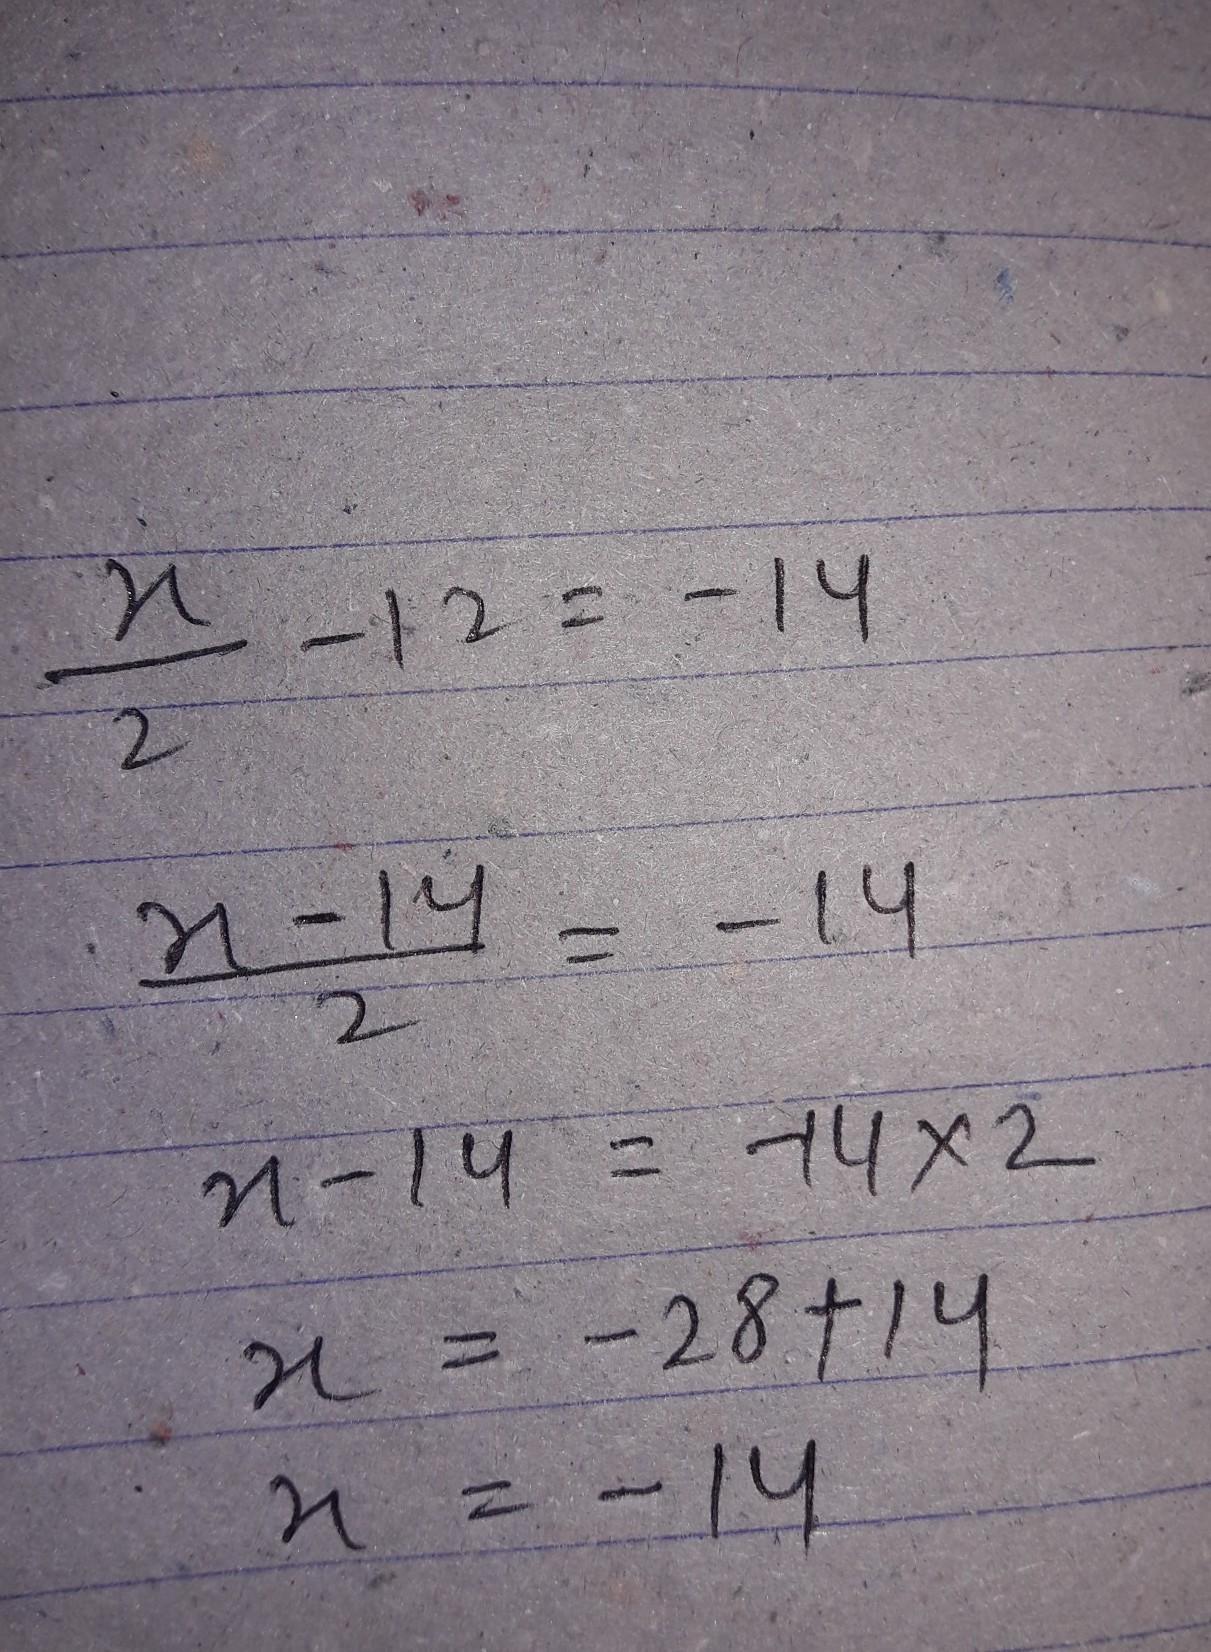 x/2 -12 = -14
x -14/2 = -14
x -14 = -14 × 2
x = -28 + 14
x = -14